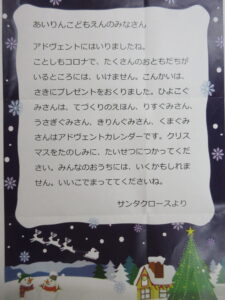 あいりんこどもえんのみなさん
アドヴェントにはいりましたね。
ことしもコロナで、たくさんのおともだちが
いるところには、いけません。こんかいは、
さきにプレゼントをおくりました。ひよこぐ
みさんは、てづくりのえほん、りすぐみさん、
うさぎぐみさん、きりんぐみさん、くまぐみ
さんはアドベントカレンダーです。クリス
マスをたのしみに、たいせつにつかってくだ
さい。みんなのおうちには、いくかもしれま
せん。いいこでまっててくださいね。
サンタクロースより